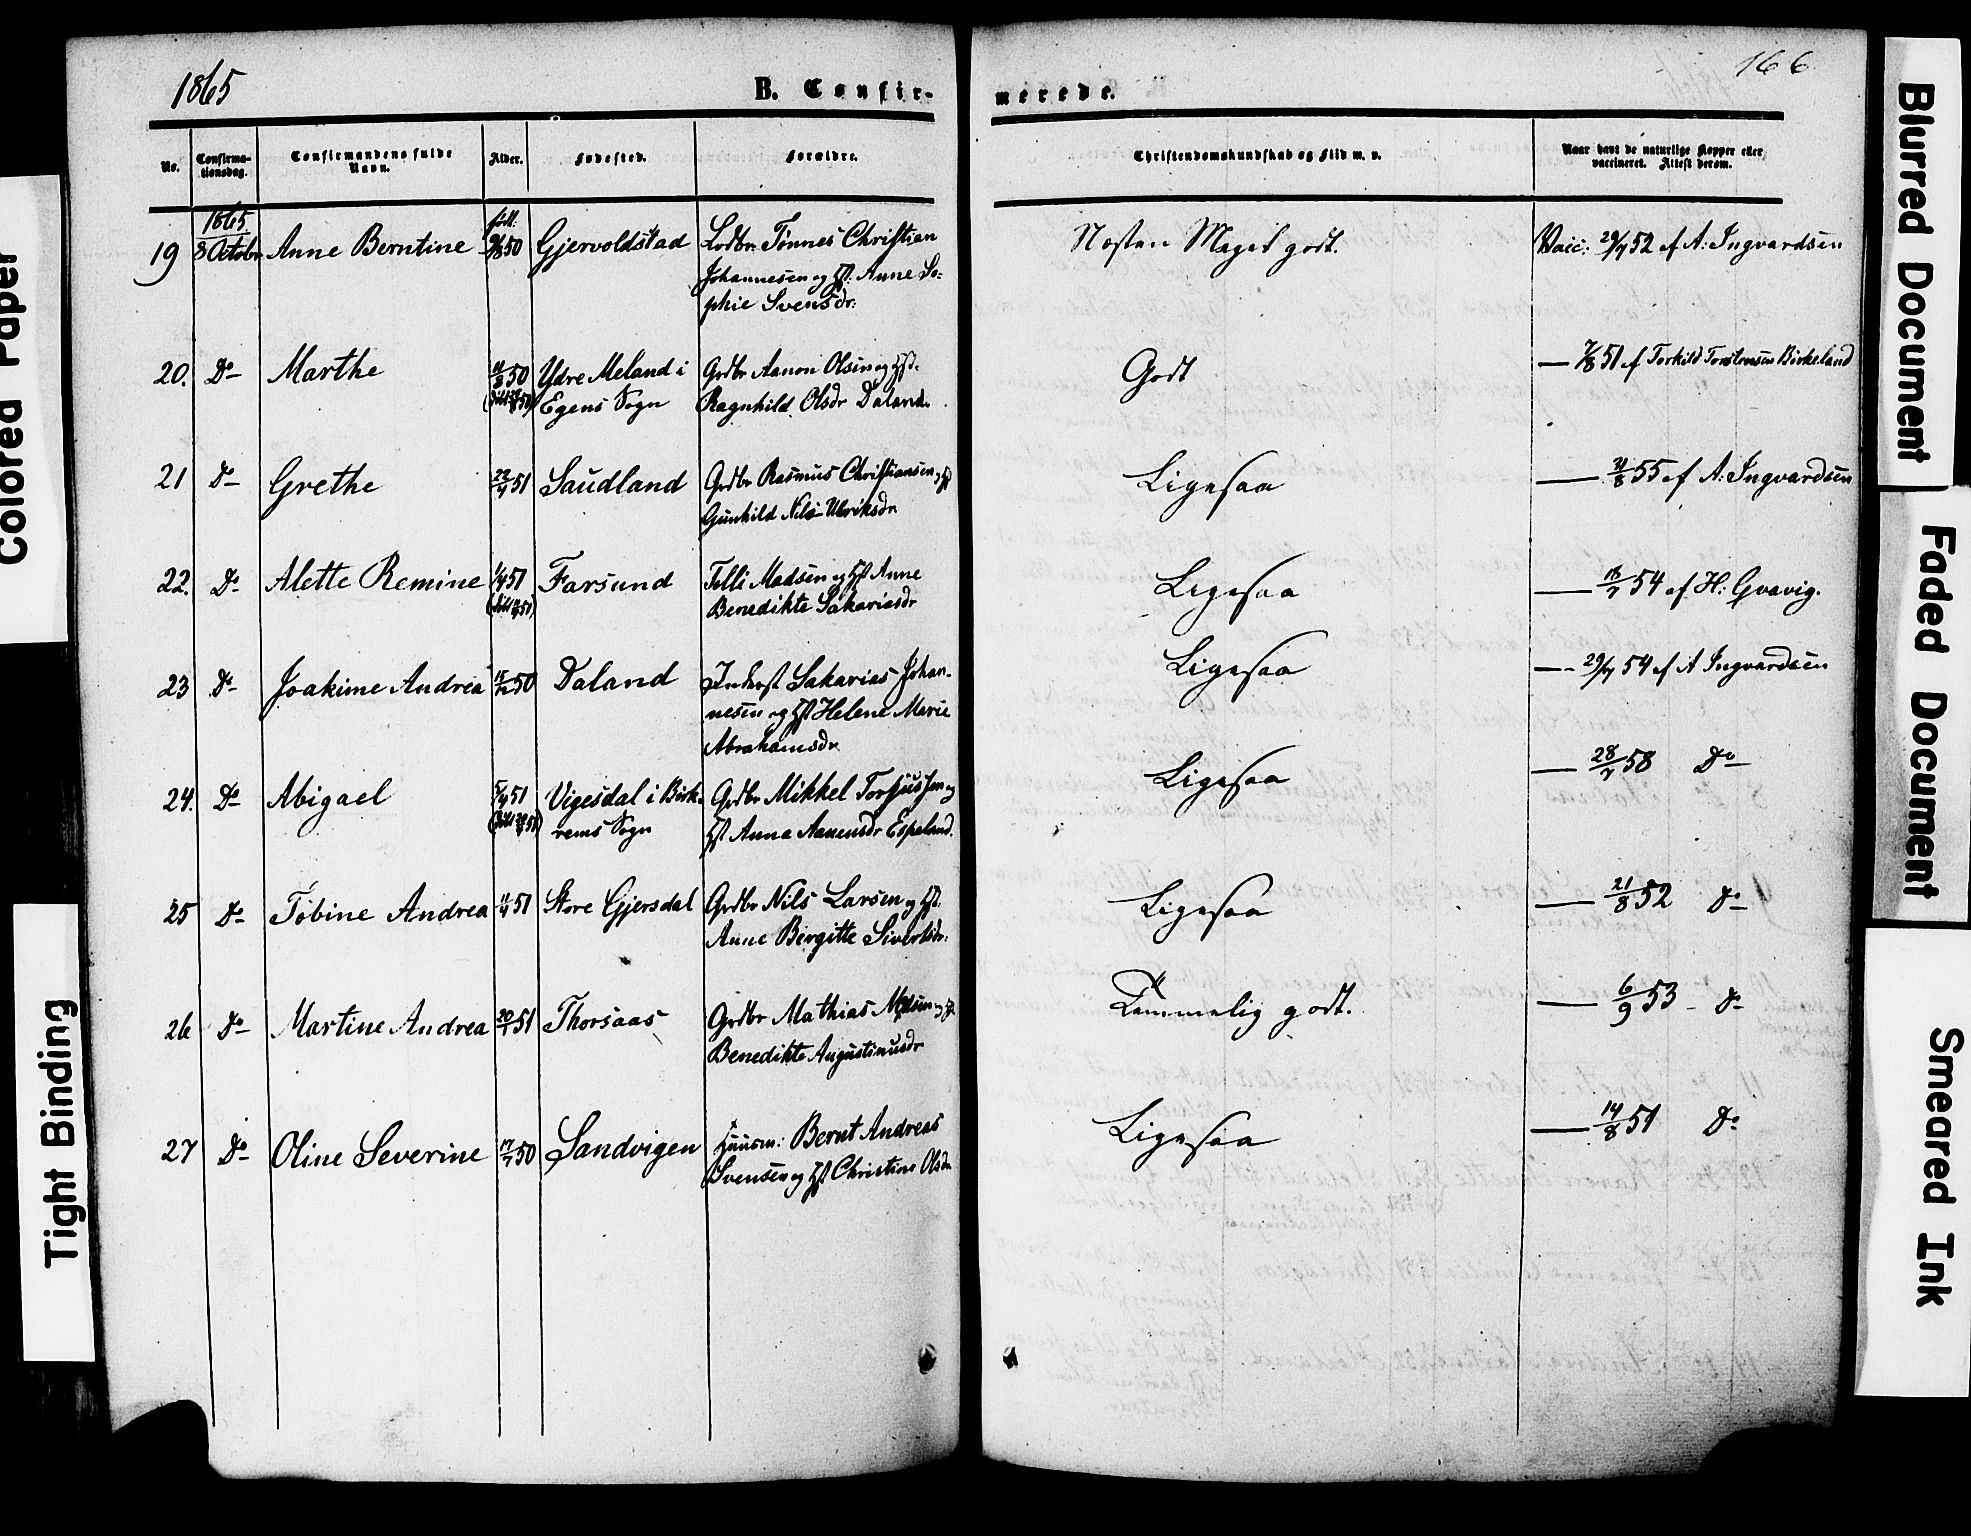 1865
B. Confir-
merede.
166
No.
Confirma-
tionsdag.
Confirmandens fulde
Navn.
Alder.
Fødested.
Forældre.
Christendomskundskab og Flid m. v.
Naar havt de naturlige Kopper eller
vaccineret. Attest derom.
1865
19 8 Octobr Anne Berntine 50 Gjervoldstad Lodbr Tønnes Christian
Johannesen og Hst: Anne So-
phie Svensdr:
Næsten Meget godt. Vacc: 29/9 52 af A: Ingvardsen
20. Do Marthe 50 Ydre Meland i Grdbr Aanon Olsen og Hst.
Egens Sogn Ragnhild Olsdr Daland.
Godt — 7/8 51 af Torkild Torstensen Birkeland
21 Do Grethe 22/4 51 Saudland Grdbr Rasmus Christiansen og Hst
Gunhild Nils-Ulriksdr
Ligesaa — 55 af A: Ingvardsen
22. Do Alette Remine 51 Farsund Tolli Madsen og Hst Anne
Benedikte Sakariasdr
Ligesaa — 54 af H: Gvavig.
23 Do Joakime Andrea 50 Daland Inderst Sakarias Johan-
nesen og Hst Helene Marie
Abrahamsdr
Ligesaa — 29/9 54 af A Ingvardsen
24. Do Abigael 51 Vigesdal i Birk- Grdbr Mikkel Torjussen og
rems Sogn Hst Anna Aanensdr Espeland.
Ligesaa — 28/7 58 Do
25 Do Tobine Andrea 51 Store Gjersdal Grdbr Nils Larsen og Hst.
Anne Bergitte Sivertsdr:
Ligesaa — 21/8 52 Do
26 Do Martine Andrea 20/1 51 Thorsaas Grdbr Mathias Madsen og Hst
Benedikte Augustinusdr
Temmelig godt. — 6/9 53 - Do
27 Do Oline Severine 17/7 50 Sandvigen Huusm: Bernt Andreas
Svensen og Hst Christine Olsdr
Ligesaa — 14/8 51 Do
Colored Paper
Tight Binding
Blurred Document
Faded Document
Smeared Ink